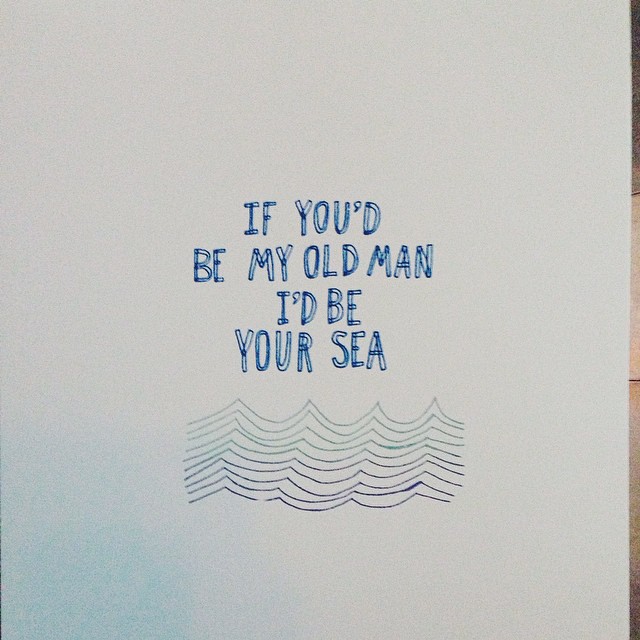 IF YOU'D
BE MY OLD MAN
I'D BE
YOUR SEA